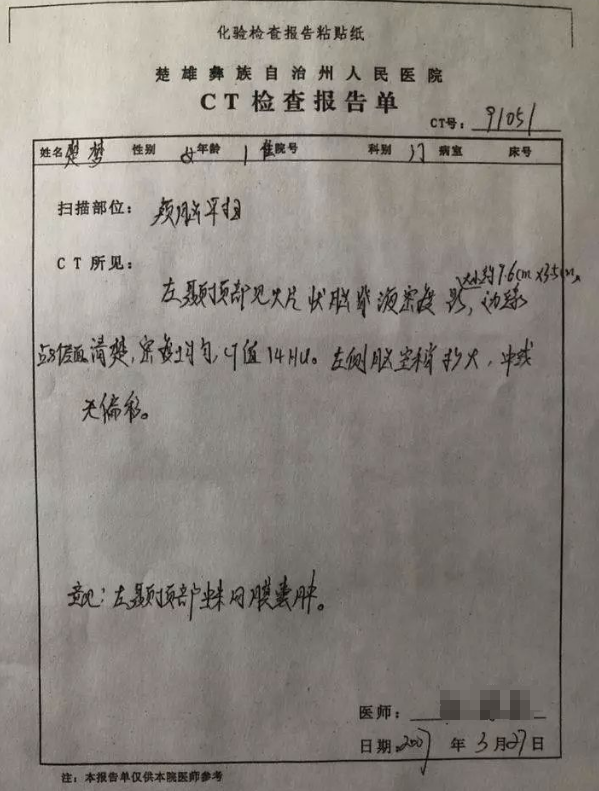 化验检查报告粘贴纸
楚雄彝族自治州人民医院
CT检查报告单
CT号：91051
姓名 楚梦 性别 女 年龄 1 住院号 科别 门 病室 床号
扫描部位： 颅脑平扫
CT所见：
左颞顶部见大片状脑脊液密度影， 大小约7.6cm×3.5cm，边缘
清楚，密度均匀，CT值14HU。左侧脑室稍扩大，中线
无偏移。
意见：左颞顶部蛛网膜囊肿。
医师：
日期：2007年3月27日
注：本报告单仅供本院医师参考